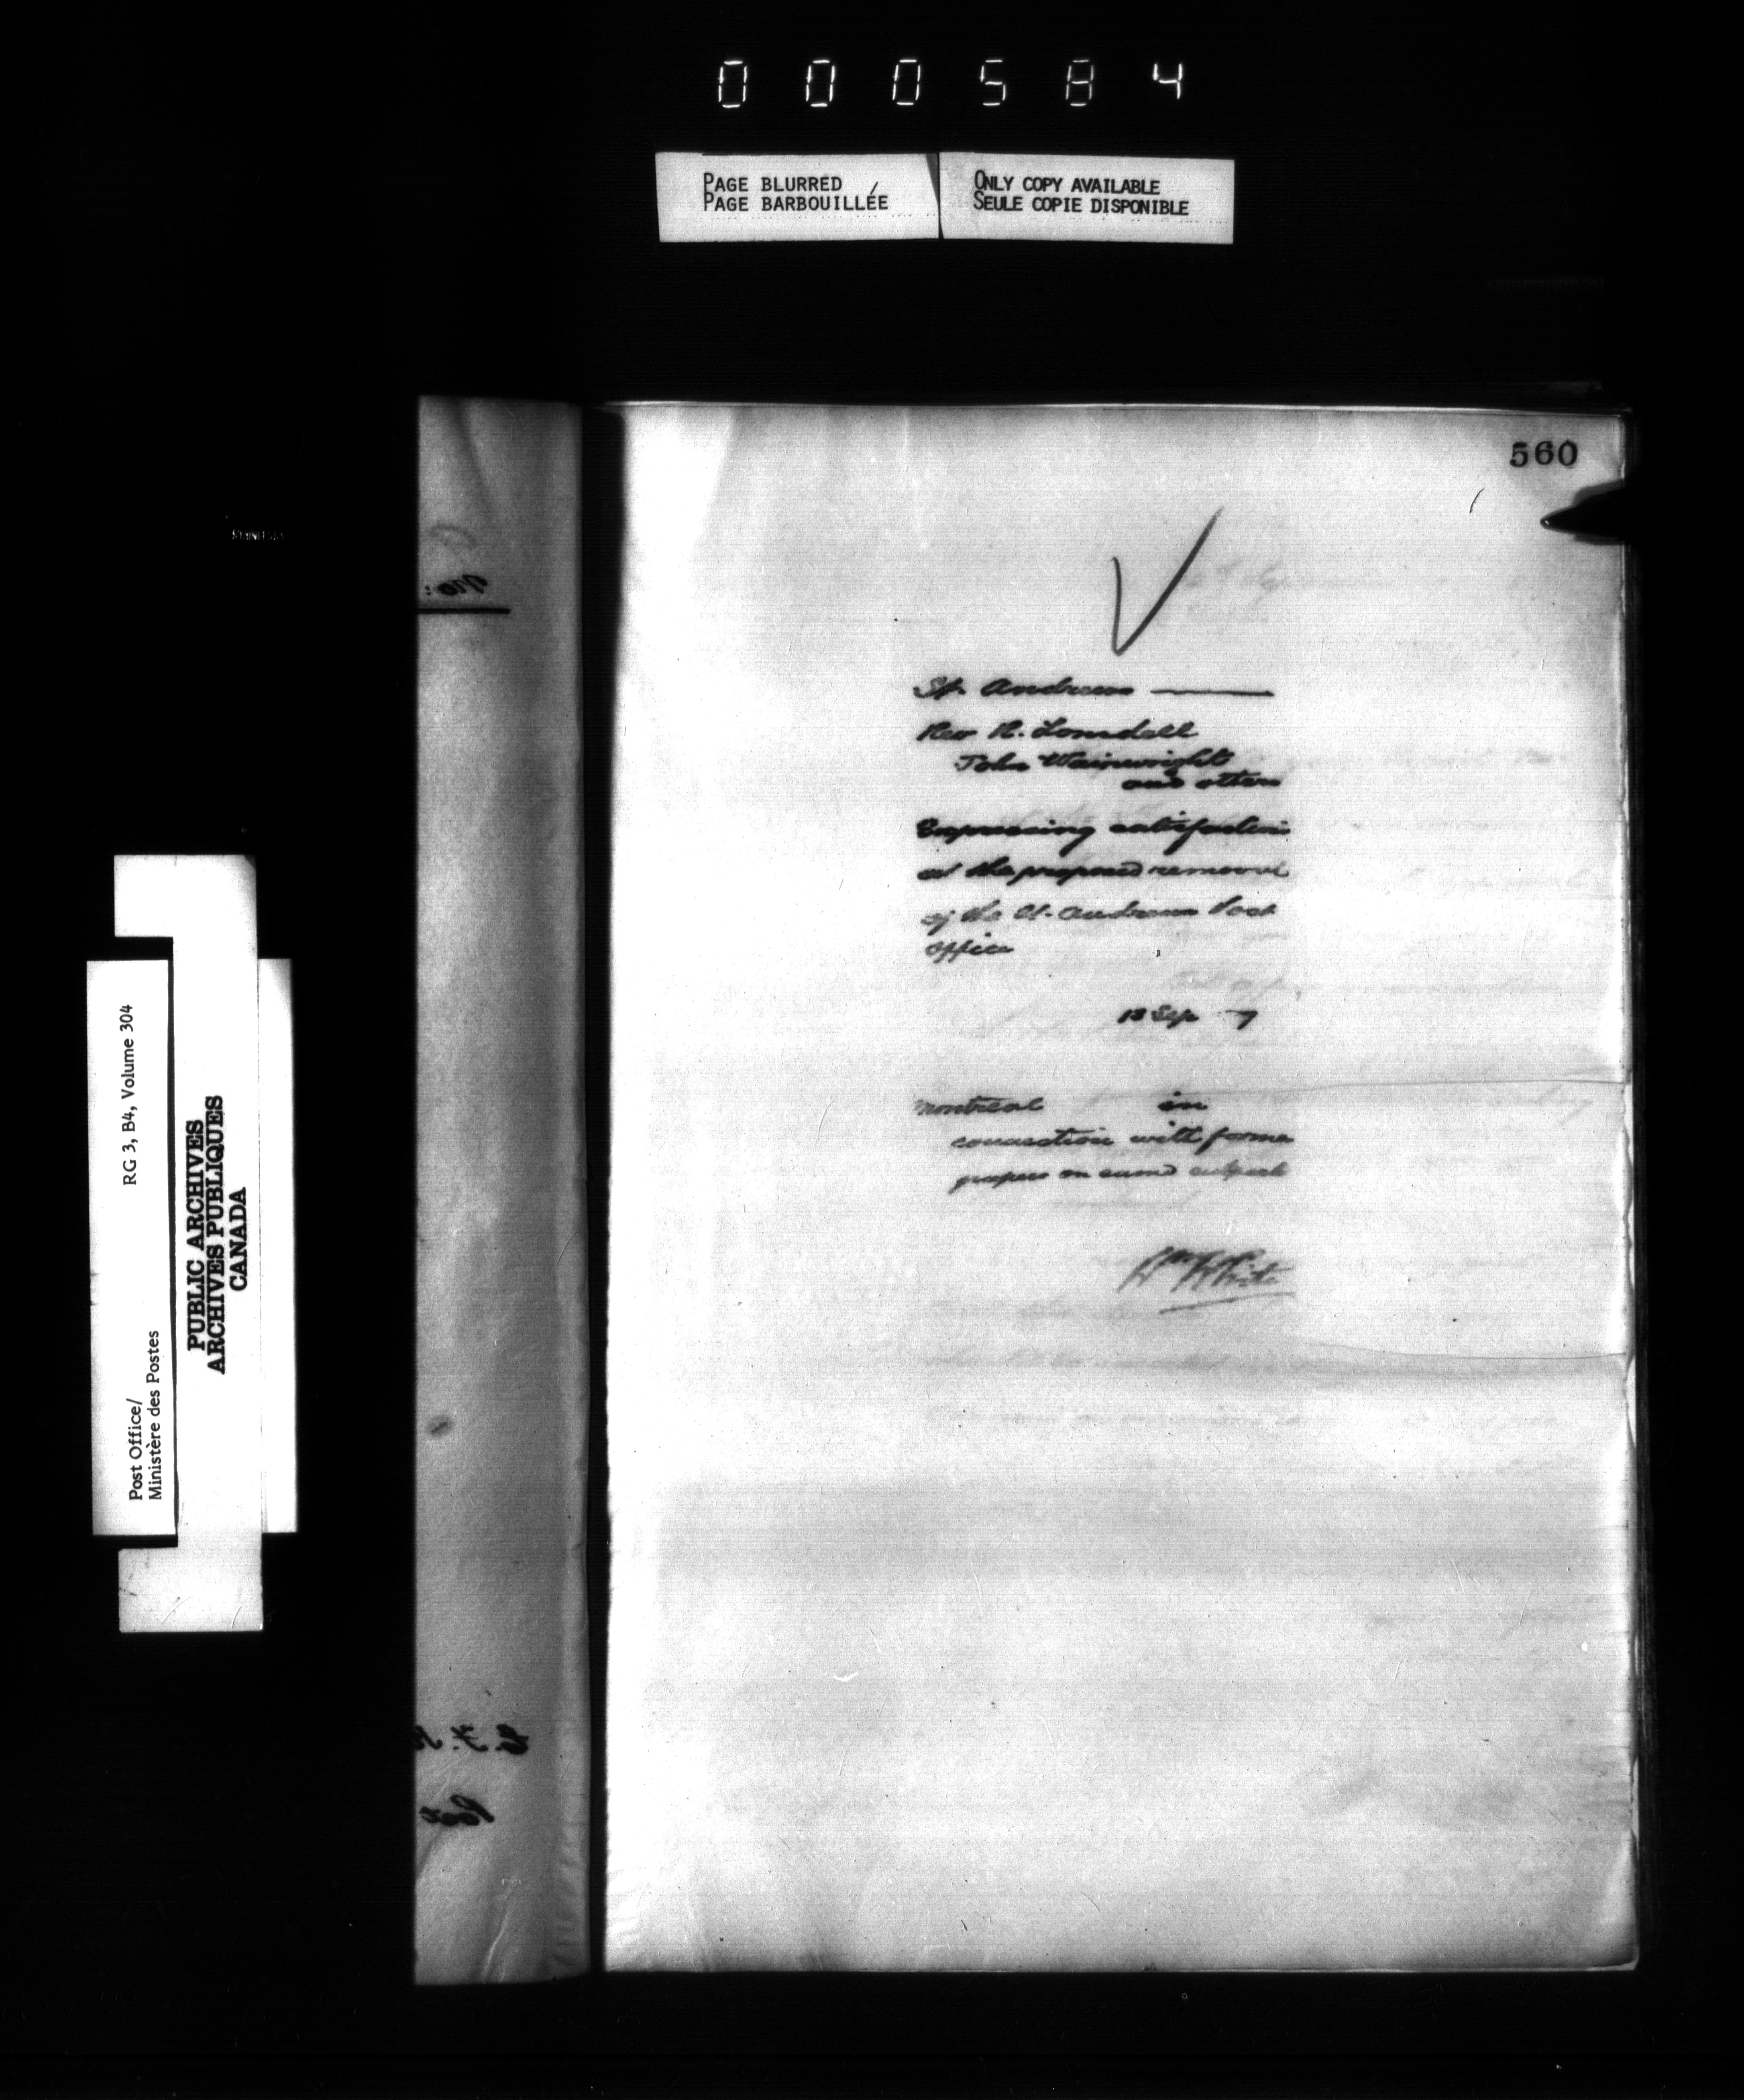 000584
PAGE BLURRED
PAGE BARBOUILLÉE
ONLY COPY AVAILABLE
SEULE COPIE DISPONIBLE
560
St. Andrews
Rev R. Lonsdell
John Wainwright
and others
Expressing satisfaction
at the proposed removal
of the St. Andrews Post
office
13 Sep 7
Montreal in
connection with forme
papers on same subject
Wm White
Post Office/
Ministère des Postes
RG 3, B4, Volume 304
PUBLIC ARCHIVES
ARCHIVES PUBLIQUES
CANADA